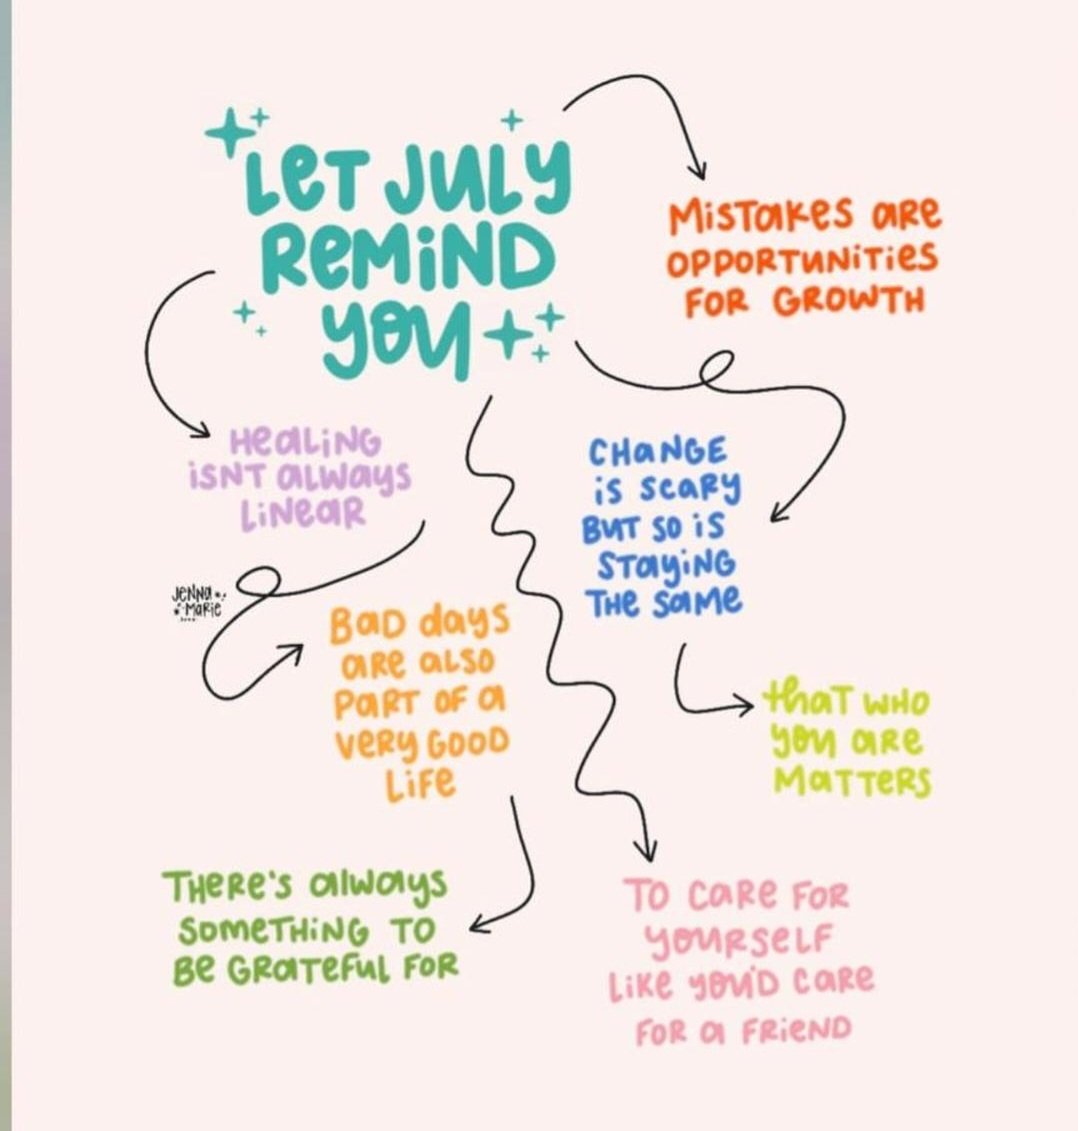 LET JULY
REMIND
YOU
MISTAKES ARE
OPPORTUNITIES
FOR GROWTH
HEALING
ISNT ALWAYS
LINEAR
CHANGE
IS SCARY
BUT SO IS
STAYING
THE SAME
JENNA
MARIE
BAD days
ARE ALSO
PART OF A
VERY GOOD
LIFE
that WHO
YOU ARE
MATTERS
THERE'S always
SOMETHING TO
BE GRATEFUL FOR
TO CARE FOR
YOURSELF
LIKE YOU'D CARE
FOR A FRIEND